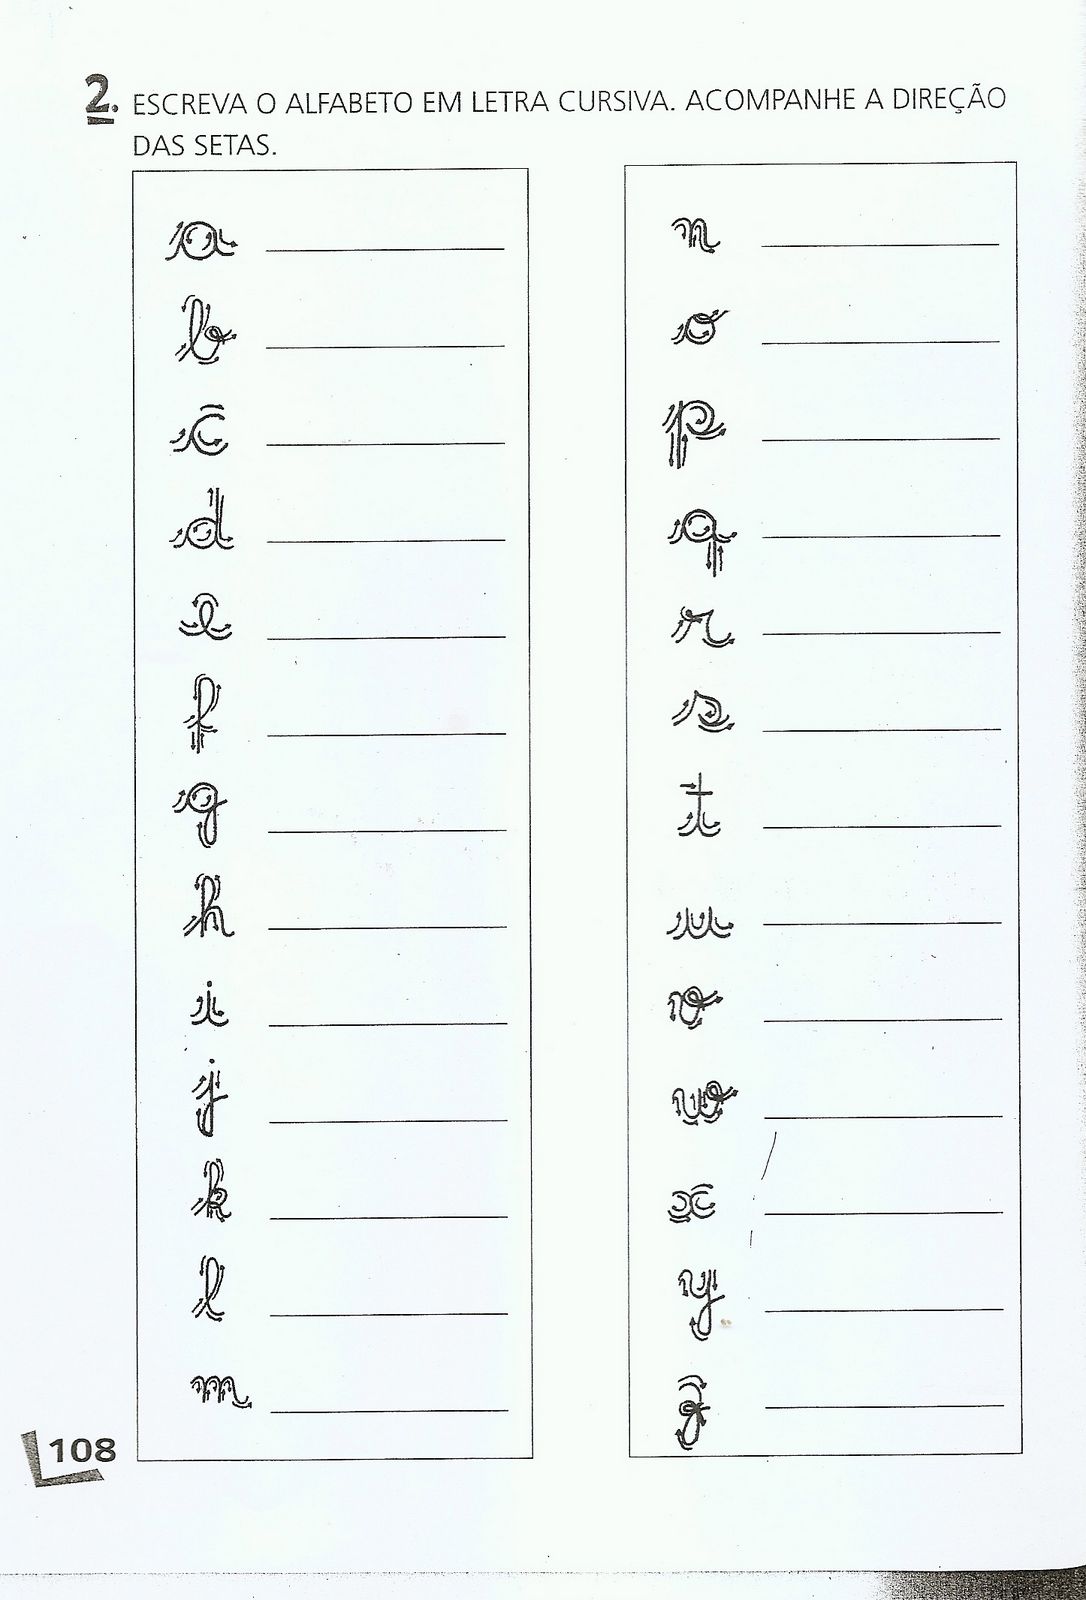 2. ESCREVA O ALFABETO EM LETRA CURSIVA. ACOMPANHE A DIREÇÃO
DAS SETAS.
a
b
c
d
e
f
g
h
i
j
k
l
m
n
o
p
q
r
s
t
u
v
w
x
y
z
108